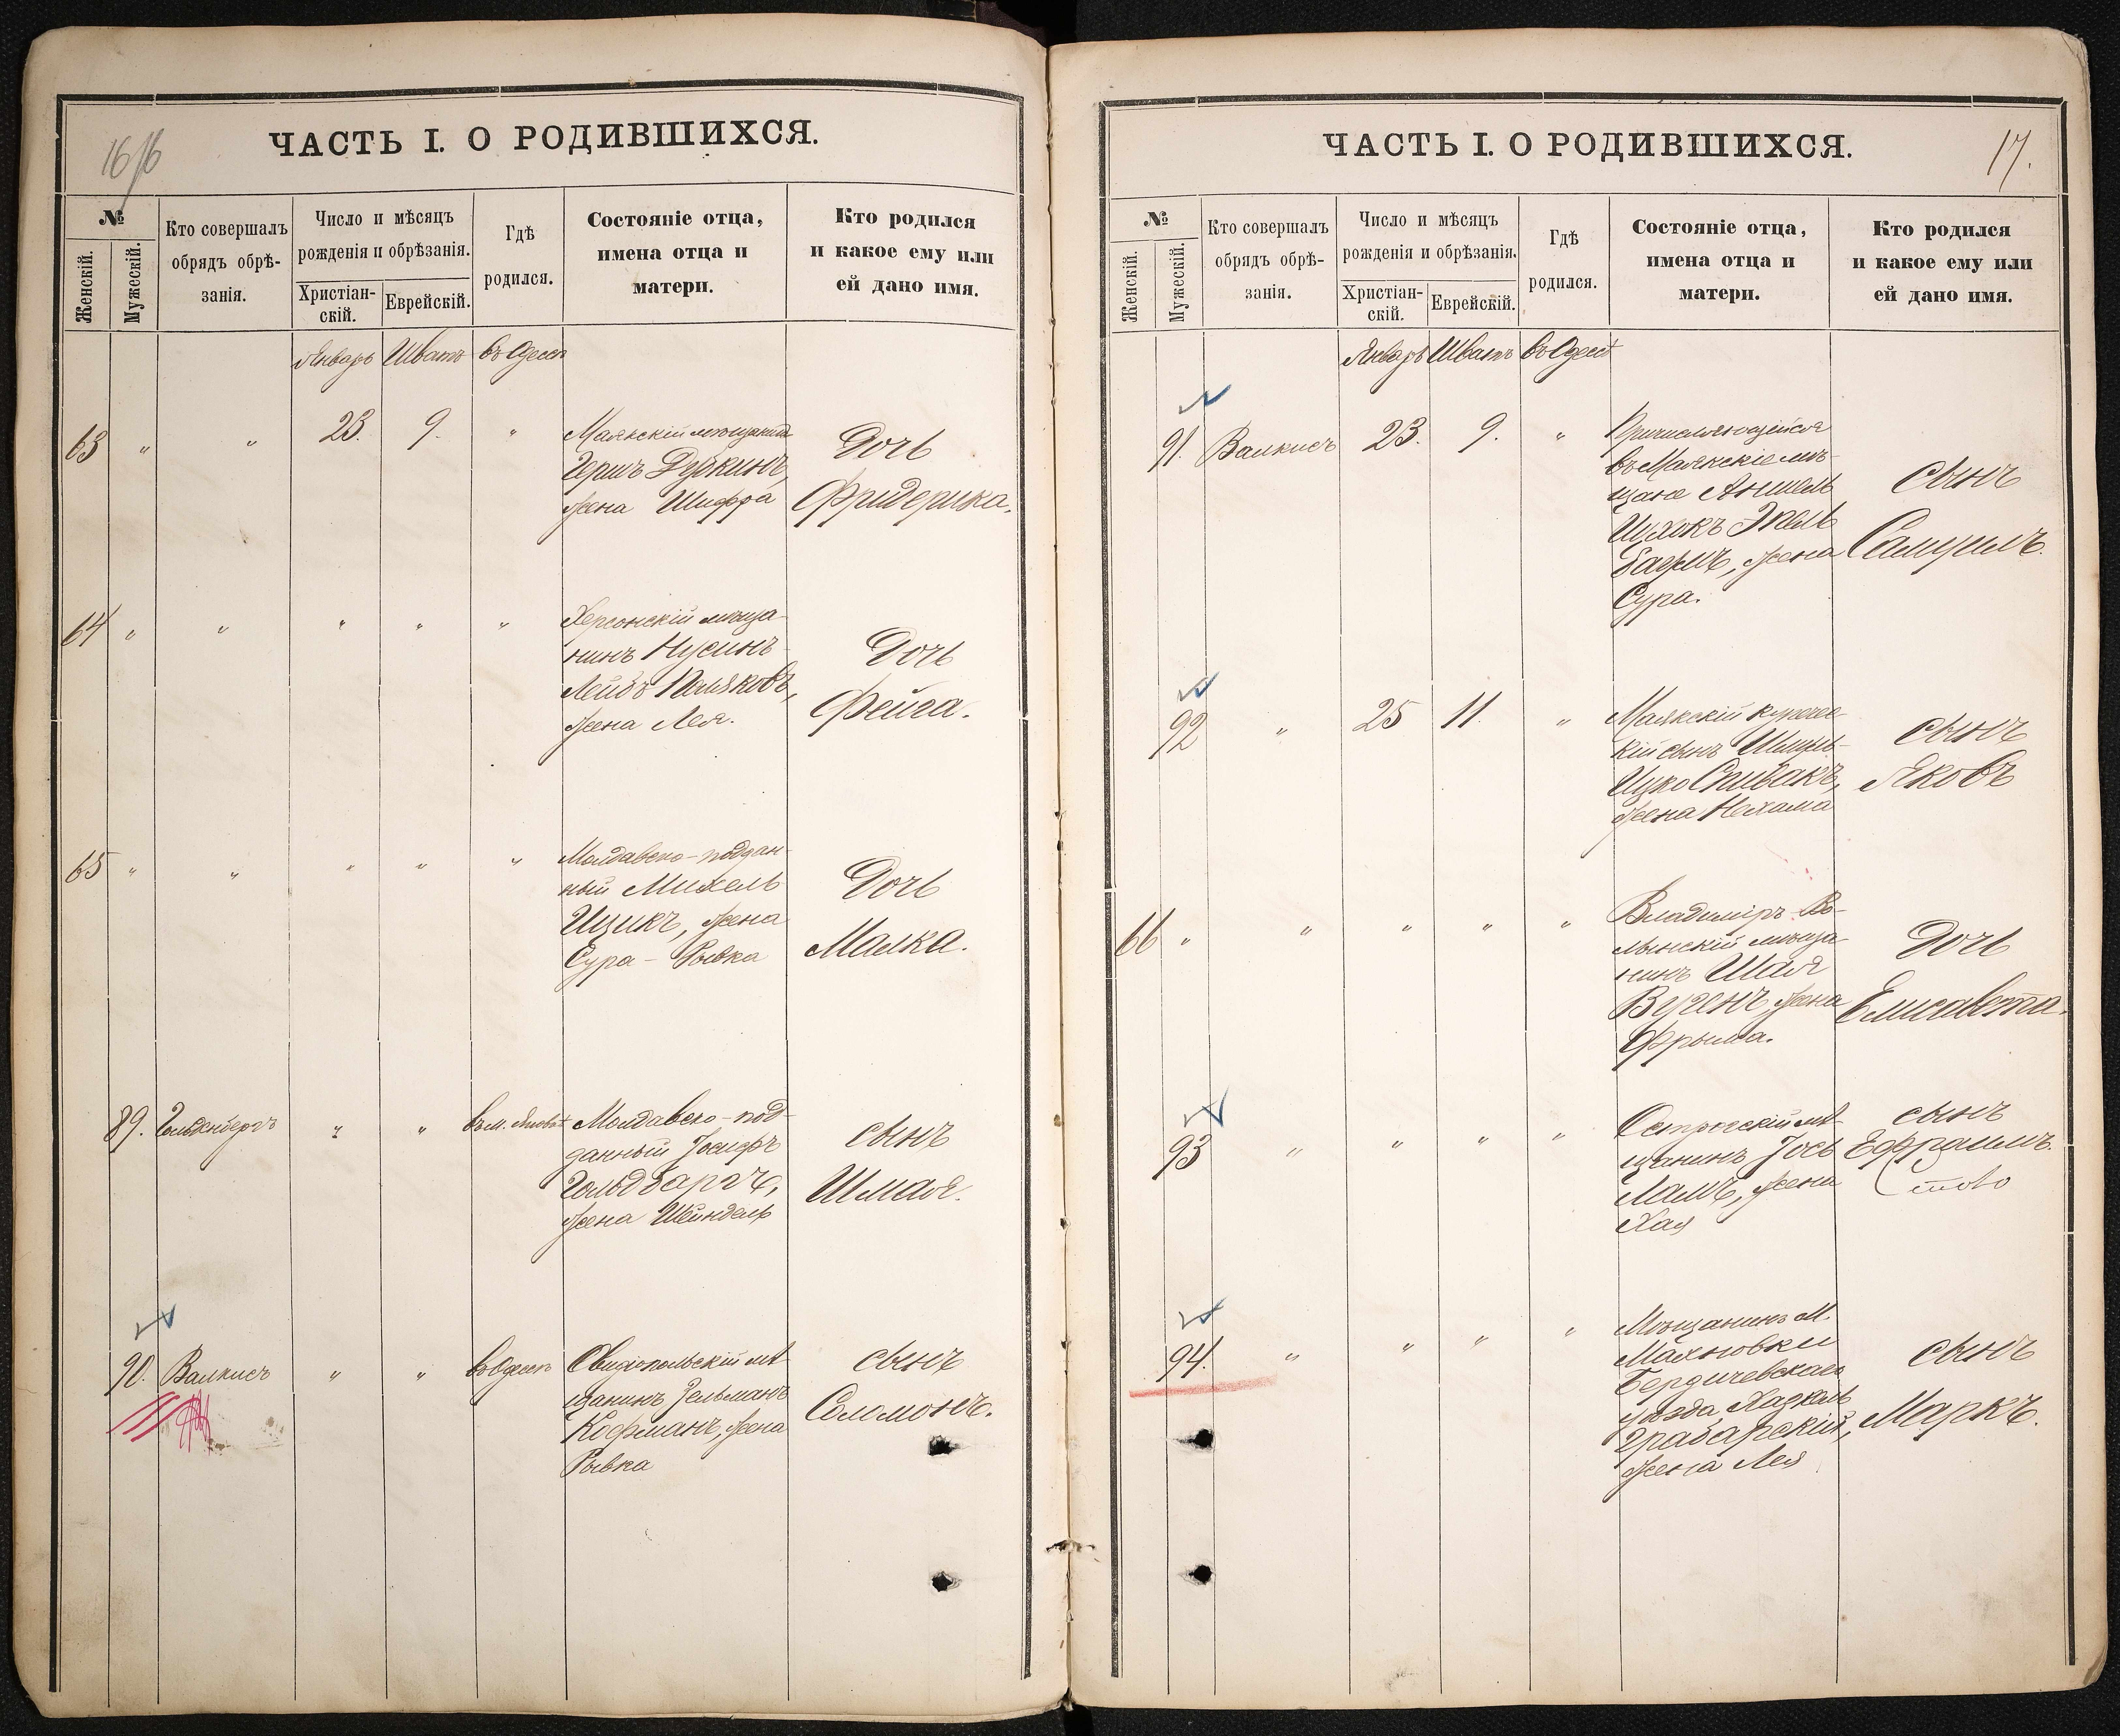 16 16
ЧАСТЬ I. О РОДИВШИХСЯ.
№
Женскій.
Мужескій.
Кто совершалъ
обрядъ обрѣ-
занія.
Число и мѣсяцъ
рожденія и обрѣзанія.
Христіан-
скій.
Еврейскій.
Гдѣ
родился.
Состояніе отца,
имена отца и
матери.
Кто родился
и какое ему или
ей дано имя.
Январь Шватъ въ Одессѣ
63 " " 23. 9. "
Маякскій мѣщанинъ
Гершъ Дудкинъ,
жена Шифра
Дочь
Фридерика.
64 " " " " "
Херсонскій мѣща-
нинъ Нусинъ-
Лейбъ Поляковъ,
жена Лея.
Дочь
Фейга.
65 " " " " "
Молдавско-поддан-
ный Михель
Ицикъ, жена
Сура-Рывка
Дочь
Малка.
89. Гольденбергъ " "
Молдавско-под-
данный Іосифъ
Гольдбаргъ,
жена Шейндель
сынъ
Шмая.
90. Валкисъ " " въ Одессѣ
Овидіопольскій мѣ-
щанинъ Зельманъ
Кофманъ, жена
Рывка
сынъ
Соломонъ.
17.
ЧАСТЬ I. О РОДИВШИХСЯ.
№
Женскій.
Мужескій.
Кто совершалъ
обрядъ обрѣ-
занія.
Число и мѣсяцъ
рожденія и обрѣзанія.
Христіан-
скій.
Еврейскій.
Гдѣ
родился.
Состояніе отца,
имена отца и
матери.
Кто родился
и какое ему или
ей дано имя.
Январь Шватъ въ Одессѣ
91. Валкисъ 23. 9. "
Причисляющійся
въ Маякскіе мѣ-
щане Аншель
Ицхокъ
жена
Сура.
сынъ
Самуилъ.
92 " 25 11. "
Маякскій купечес-
кій сынъ Шмуль-
Ицко Спивакъ,
жена Нехама
сынъ
Яковъ
66 " " " " "
Владиміръ-Во-
лынскій мѣща-
нинъ Шая
жена
Фрыма.
Дочь
Елисавета.
93 " " " "
Острогскій мѣ-
щанинъ Іось
Ламъ, жена
Хая
сынъ
Ефраимъ.
94. " " " "
Мѣщанинъ м.
Махновки
Бердичевскаго
уѣзда Хаскель
Грабарскій,
жена Лея
сынъ
Маркъ.